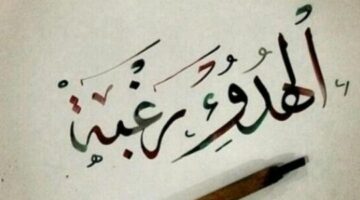 الهُدُوءِ رَغْبَةٌ